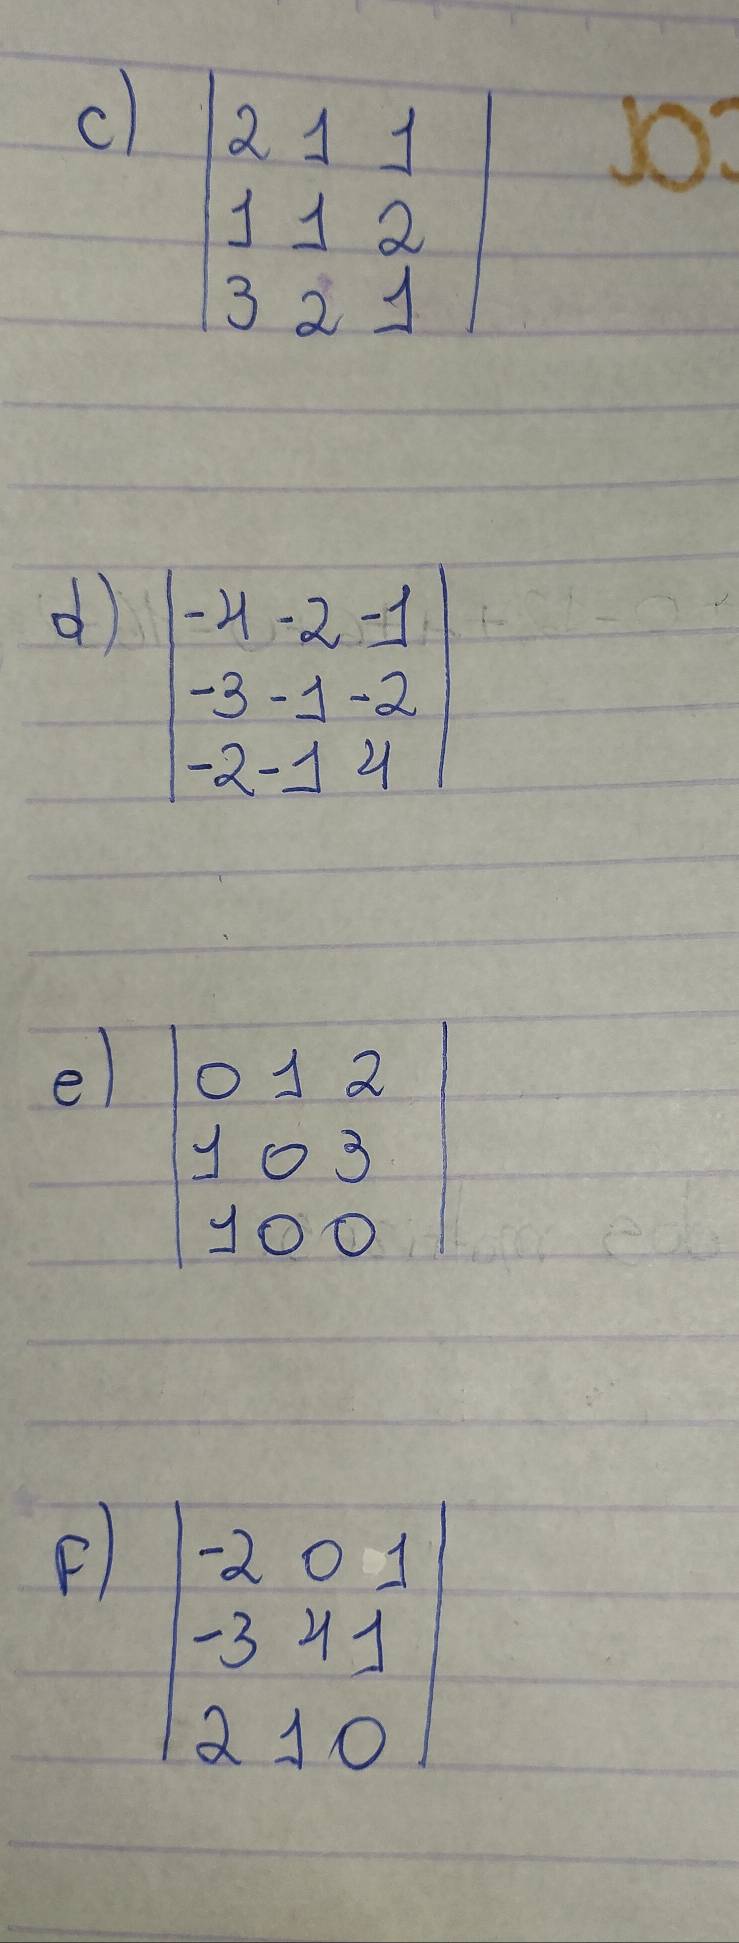 c) |2 1 1|
|1 1 2|
|3 2 1|
d) |-4 -2 -1|
|-3 -1 -2|
|-2 -1 4|
e) |0 1 2|
|1 0 3|
|1 0 0|
F) |-2 0 1|
|-3 4 1|
|2 1 0|